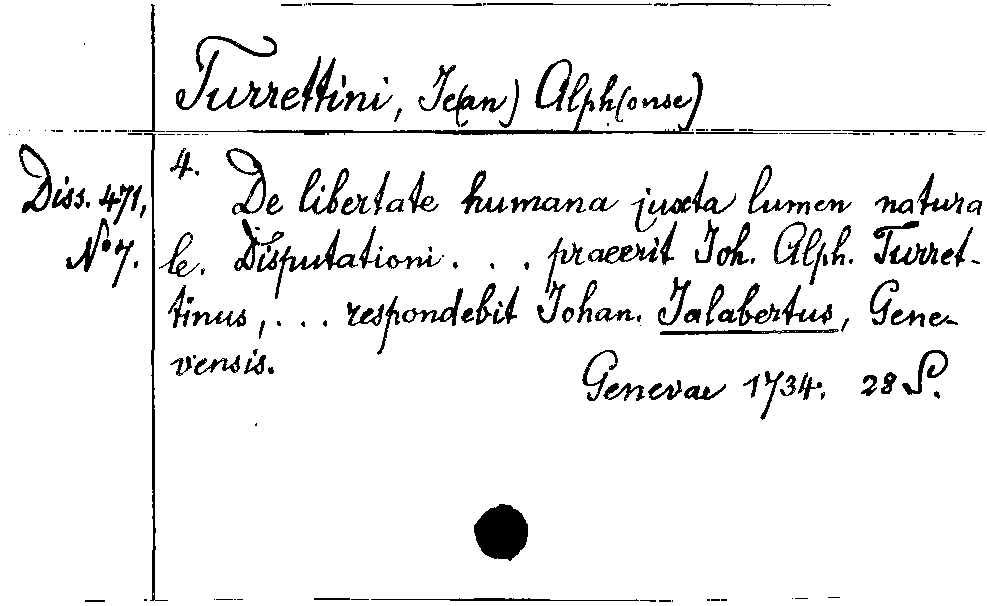 Turrettini, Je(an) Alph(onse)
Diss. 471,
No 7.
4.
De libertate humana juxta lumen natura
le. Disputationi . . . praeerit Joh. Alph. Turret-
tinus, . . . respondebit Johan. Jalabertus, Gene-
vensis.
Genevae 1734. 28 S.